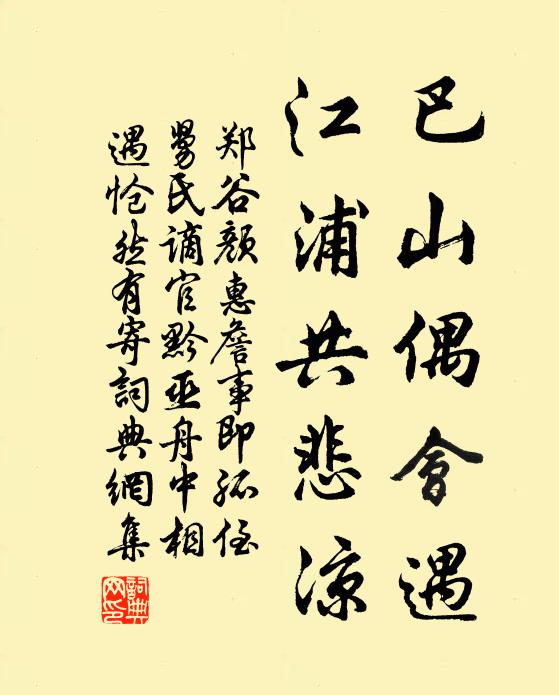 巴山偶會遇
江浦共悲涼
郑谷顏惠詹事即孤侄
舅氏谪官黔巫舟中相
遇怆然有寄詞典網集
詞典网印